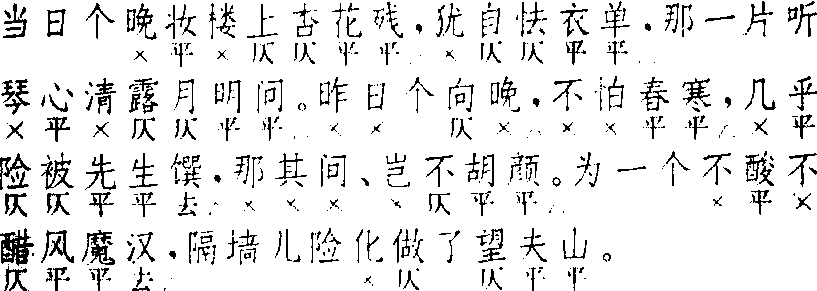 当日个晚妆楼上杏花残,犹自怯衣单,那一片听
× 平 × 仄 仄 平 平△ × 仄 仄 平 平△
琴心清露月明间。昨日个向晚,不怕春寒,几乎
× 平 × 仄 仄 平 平△ × × 仄 × × × 平 平△ × 平
险被先生馔,那其间、岂不胡颜。为一个不酸不
仄 仄 平 平 去△ × × × × 仄 平 平△ × 平 ×
醋风魔汉,隔墙儿险化做了望夫山。
仄 平 平 去△ × 仄 仄 平 平△